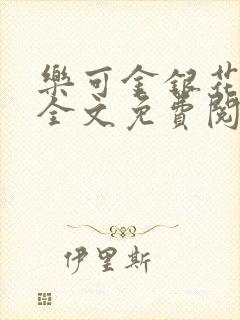 樂可金銀花
全文免費閱
伊里斯